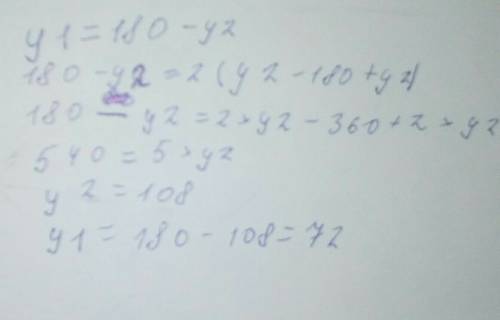 y1 = 180 - y2
180 - y2 = 2 (y2 - 180 + y2)
180 - y2 = 2 * y2 - 360 + 2 * y2
540 = 5 * y2
y2 = 108
y1 = 180 - 108 = 72